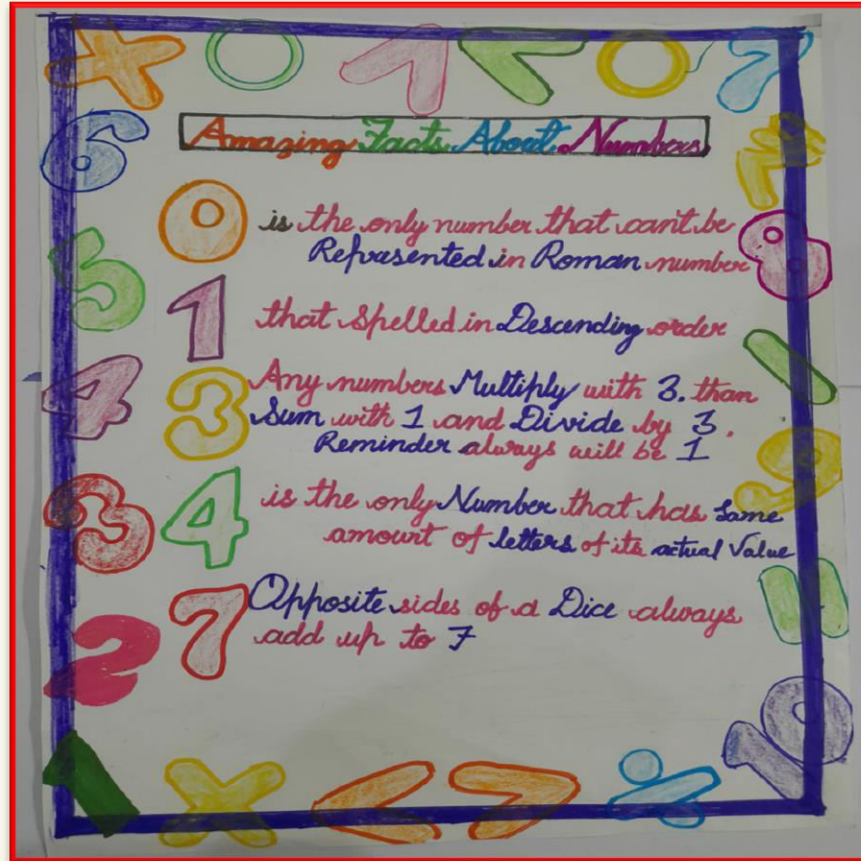 Amazing Facts About Numbers
0 is the only number that can't be
Represented in Roman number
1 that spelled in Descending order
3 Any numbers Multiply with 3. than
Sum with 1 and Divide by 3.
Reminder always will be 1
4 is the only Number that has same
amount of letters of its actual Value
7 Opposite sides of a Dice always
add up to 7
6
5
4
3
2
1
7
8
9
10